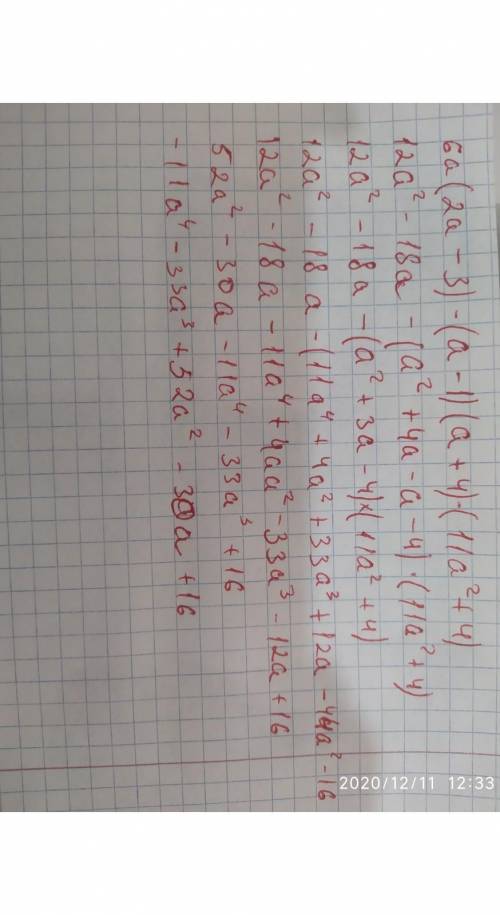 6a(2a - 3) - (a - 1)(a + 4)·(11a² + 4)
12a² - 18a - (a² + 4a - a - 4)·(11a² + 4)
12a² - 18a - (a² + 3a - 4)×(11a² + 4)
12a² - 18a - (11a⁴ + 4a² + 33a³ + 12a - 44a² - 16
12a² - 18a - 11a⁴ + 40a² - 33a³ - 12a + 16
52a² - 30a - 11a⁴ - 33a³ + 16
- 11a⁴ - 33a³ + 52a² - 30a + 16
2020/12/11 12:33